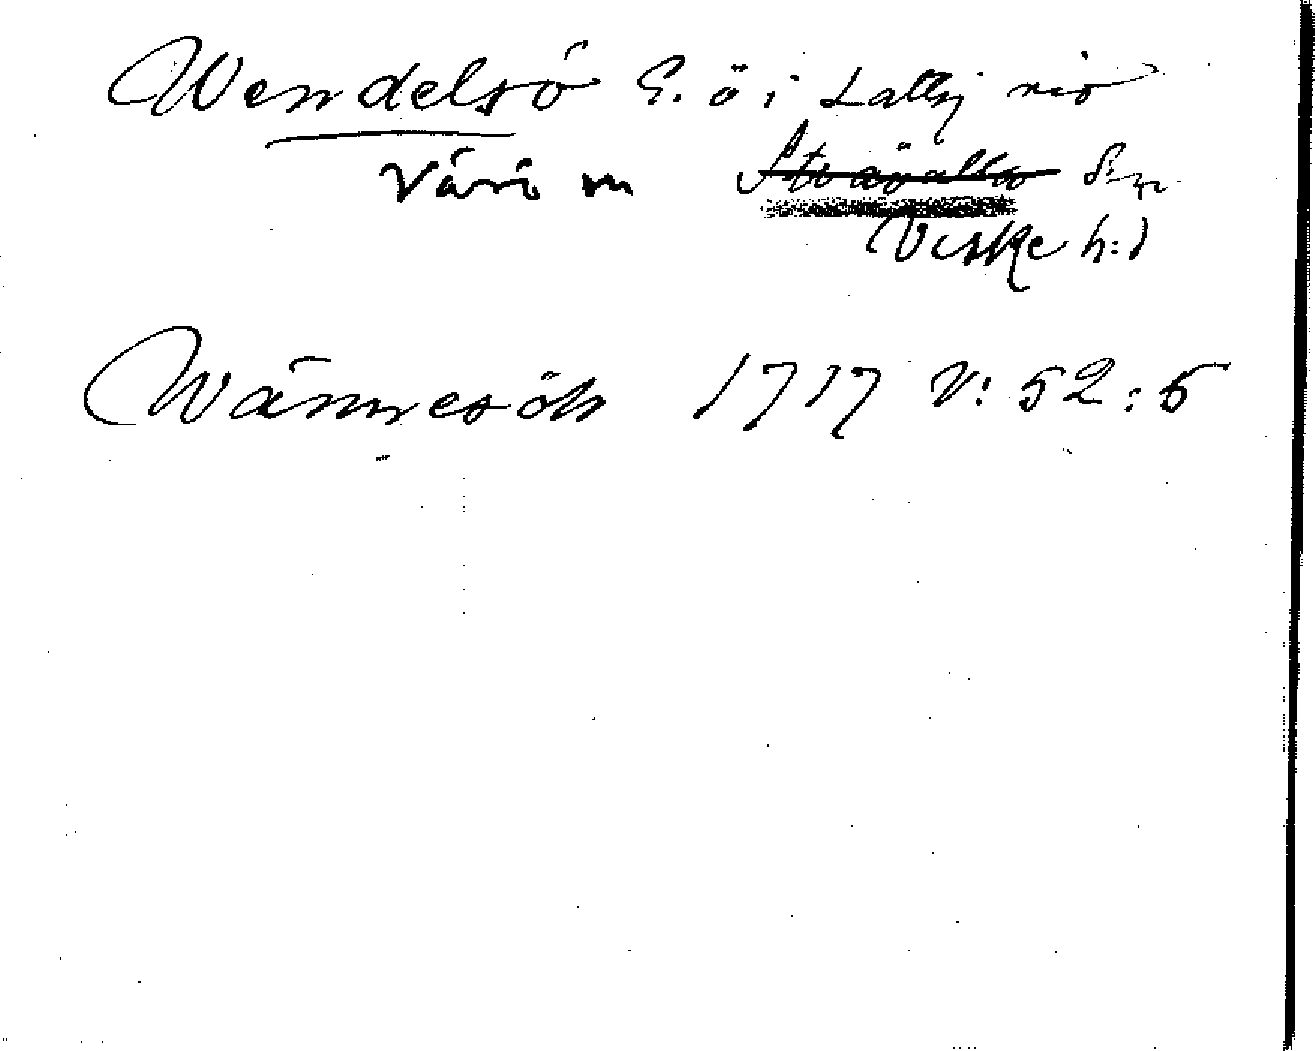 Wendelsö E. ö i Kattg. vid
Värö sn Stråvalla Sn
Viske h:d
Wännesöh 1717 V: 52:5